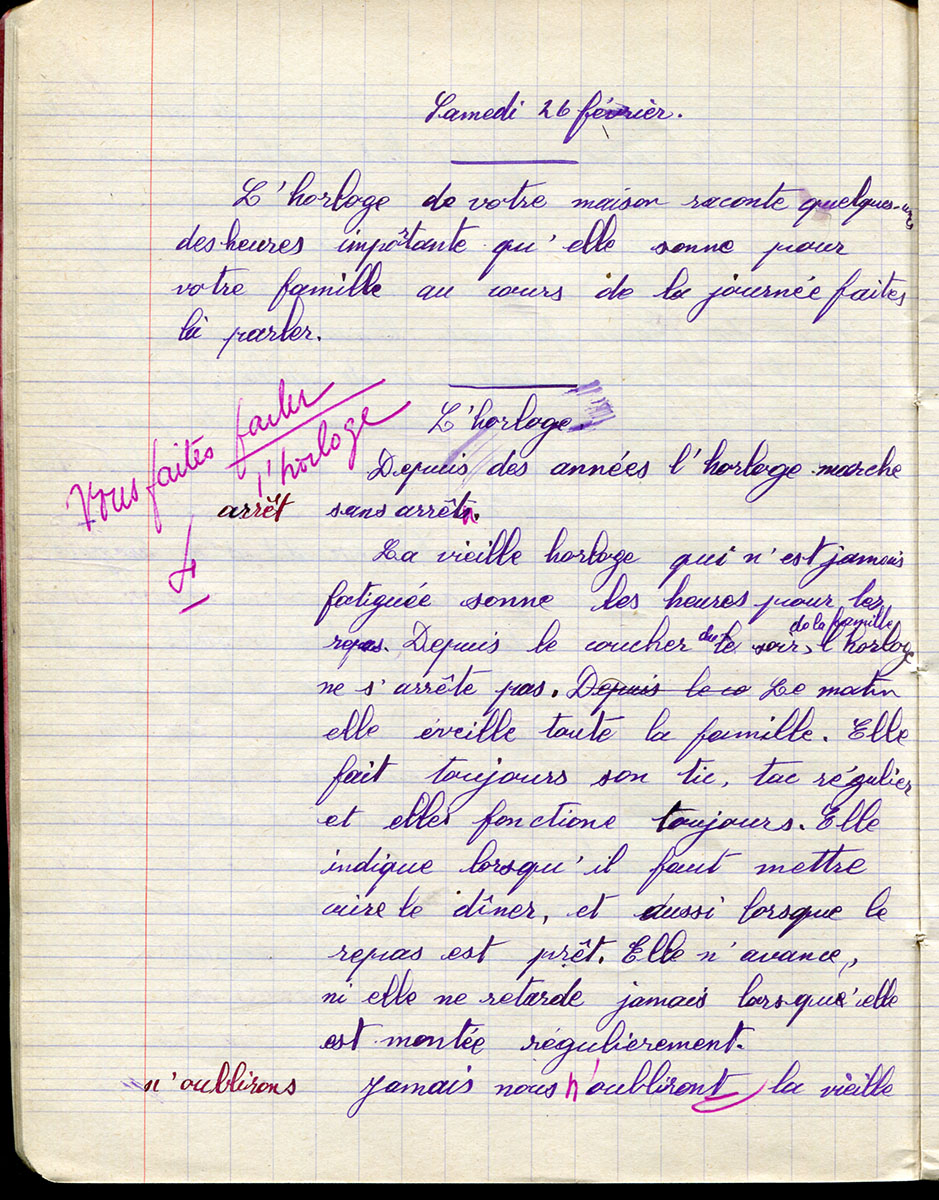 Samedi 26 février.
L'horloge de votre maison raconte quelques-unes
des heures importante qu'elle sonne pour
votre famille au cours de la journée faites
là parler.
L'horloge.
Vous faites parler
l'horloge
Depuis des années l'horloge marche
arrêt sans arrêt.
4
La vieille horloge qui n'est jamais
fatiguée sonne les heures pour les
de la famille
repas. Depuis le coucher du le soir, l'horloge
ne s'arrête pas. Depuis le co Le matin
elle éveille toute la famille. Elle
fait toujours son tic, tac régulier
et elle fonctione toujours. Elle
indique lorsqu'il faut mettre
cuire le dîner, et aussi lorsque le
repas est prêt. Elle n'avance,
ni elle ne retarde jamais lorsqu'elle
est montée régulièrement.
n'oublirons Jamais nous n'oubliront la vieille